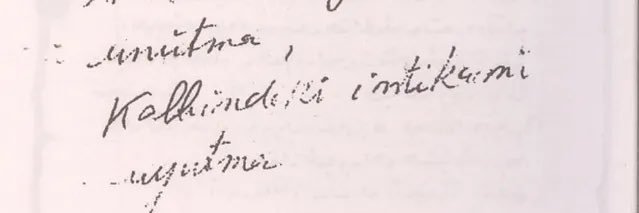 unutma,
Kalbindeki intikamı
uyutma